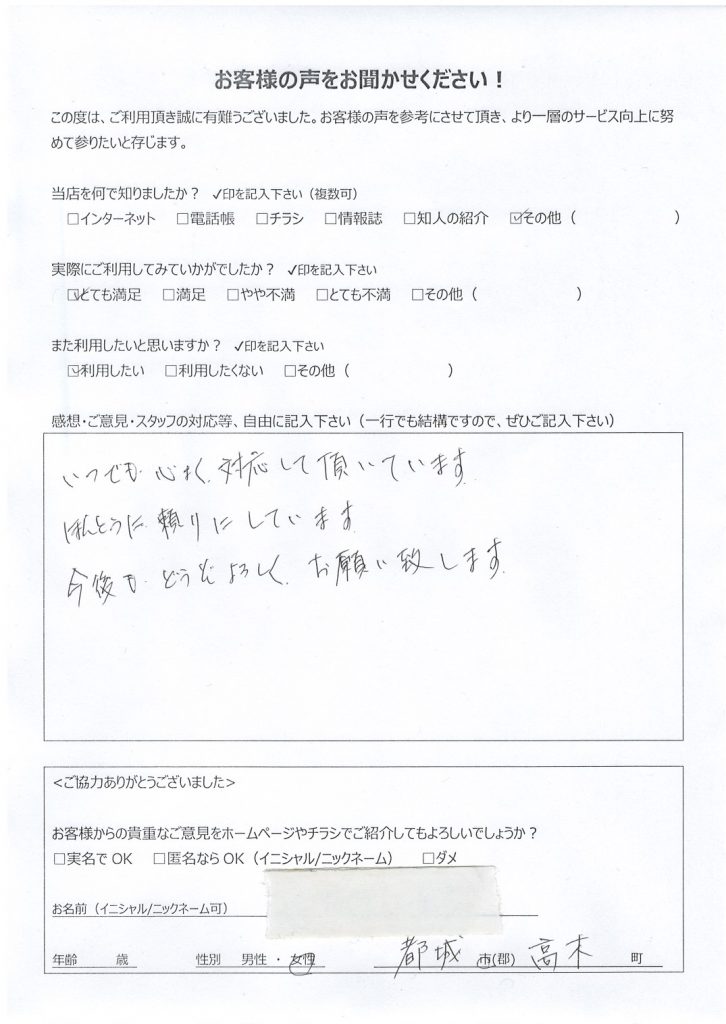 お客様の声をお聞かせください！
この度は、ご利用頂き誠に有難うございました。お客様の声を参考にさせて頂き、より一層のサービス向上に努
めて参りたいと存じます。
当店を何で知りましたか？ ✓印を記入下さい（複数可）
□インターネット □電話帳 □チラシ □情報誌 □知人の紹介 ☑その他（ ）
実際にご利用してみていかがでしたか？ ✓印を記入下さい
☑とても満足 □満足 □やや不満 □とても不満 □その他（ ）
また利用したいと思いますか？ ✓印を記入下さい
☑利用したい □利用したくない □その他（ ）
感想・ご意見・スタッフの対応等、自由に記入下さい（一行でも結構ですので、ぜひご記入下さい）
いつでも心よく対応して頂いています
ほんとうに頼りにしています
今後もどうぞよろしくお願い致します
＜ご協力ありがとうございました＞
お客様からの貴重なご意見をホームページやチラシでご紹介してもよろしいでしょうか？
□実名で OK □匿名なら OK（イニシャル/ニックネーム） □ダメ
お名前（イニシャル/ニックネーム可）
年齢 歳 性別 男性 ・ 女性 都城 市(郡) 高木 町